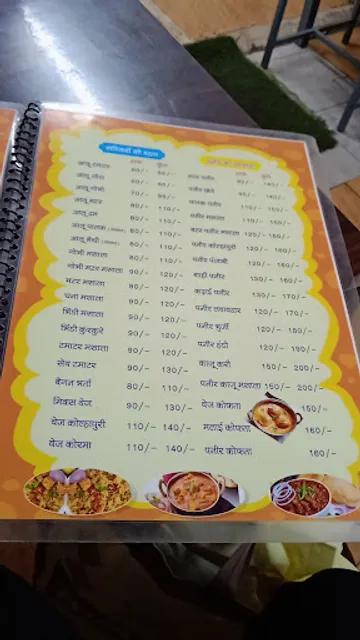 सब्जियों की बहार
हाफ फुल
आलू टमाटर
आलू जीरा
आलू गोभी
आलू मटर 80/- 110/-
आलू दम 80/- 110/-
आलू पालक 80/- 110/-
आलू मैथी 80/- 120/-
गोभी मसाला 90/- 120/-
गोभी मटर मसाला 90/- 120/-
मटर मसाला 90/- 120/-
चना मसाला 90/- 120/-
भिंडी मसाला 90/- 120/-
भिंडी कुरकुरे 90/- 120/-
टमाटर मसाला 90/- 120/-
सेव टमाटर 90/- 130/-
बैगन भर्ता 80/- 110/-
मिक्स वेज 90/- 130/-
वेज कोल्हापुरी 110/- 140/-
वेज कोरमा 110/- 140/-
हाफ फुल
मटर पनीर
पनीर
पालक पनीर 110/- 150/-
पनीर मसाला 110/- 150/-
मटर पनीर मसाला 120/- 160/-
पनीर कोल्हापुरी 120/- 160/-
पनीर पंजाबी 120/- 160/-
पनीर 130/- 160/-
कड़ाई पनीर 130/- 170/-
पनीर लवाबदार 120/- 170/-
पनीर भुर्जी 120/- 150/-
पनीर हंडी 120/- 190/-
काजू करी 150/- 200/-
पनीर काजू मसाला 150/- 200/-
वेज कोफ्ता 150/-
मलाई कोफ्ता 160/-
पनीर कोफ्ता 160/-